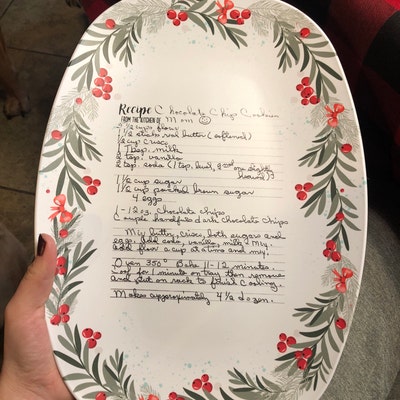 Recipe Chocolate Chip Cookies
FROM THE KITCHEN OF Mom
1/2 cups flour
1/2 sticks real butter (softened)
1/2 cup Crisco
1 Tbsp. milk
2 tsp. vanilla
2 tsp. soda (1 tsp. level, 2nd one slightly
1 1/2 cup sugar
1 1/2 cup packed brown sugar
4 eggs
1-12 oz. chocolate chips
Couple handfuls dark chocolate chips
Mix butter, crisco, both sugars and
eggs. Add soda, vanilla, milk. Mix.
Add flour a cup at a time and mix.
Oven 350° Bake 11-12 minutes.
Cool for 1 minute on tray then remove
and put on rack to finish cooling.
Makes approximately 4 1/2 dozen.